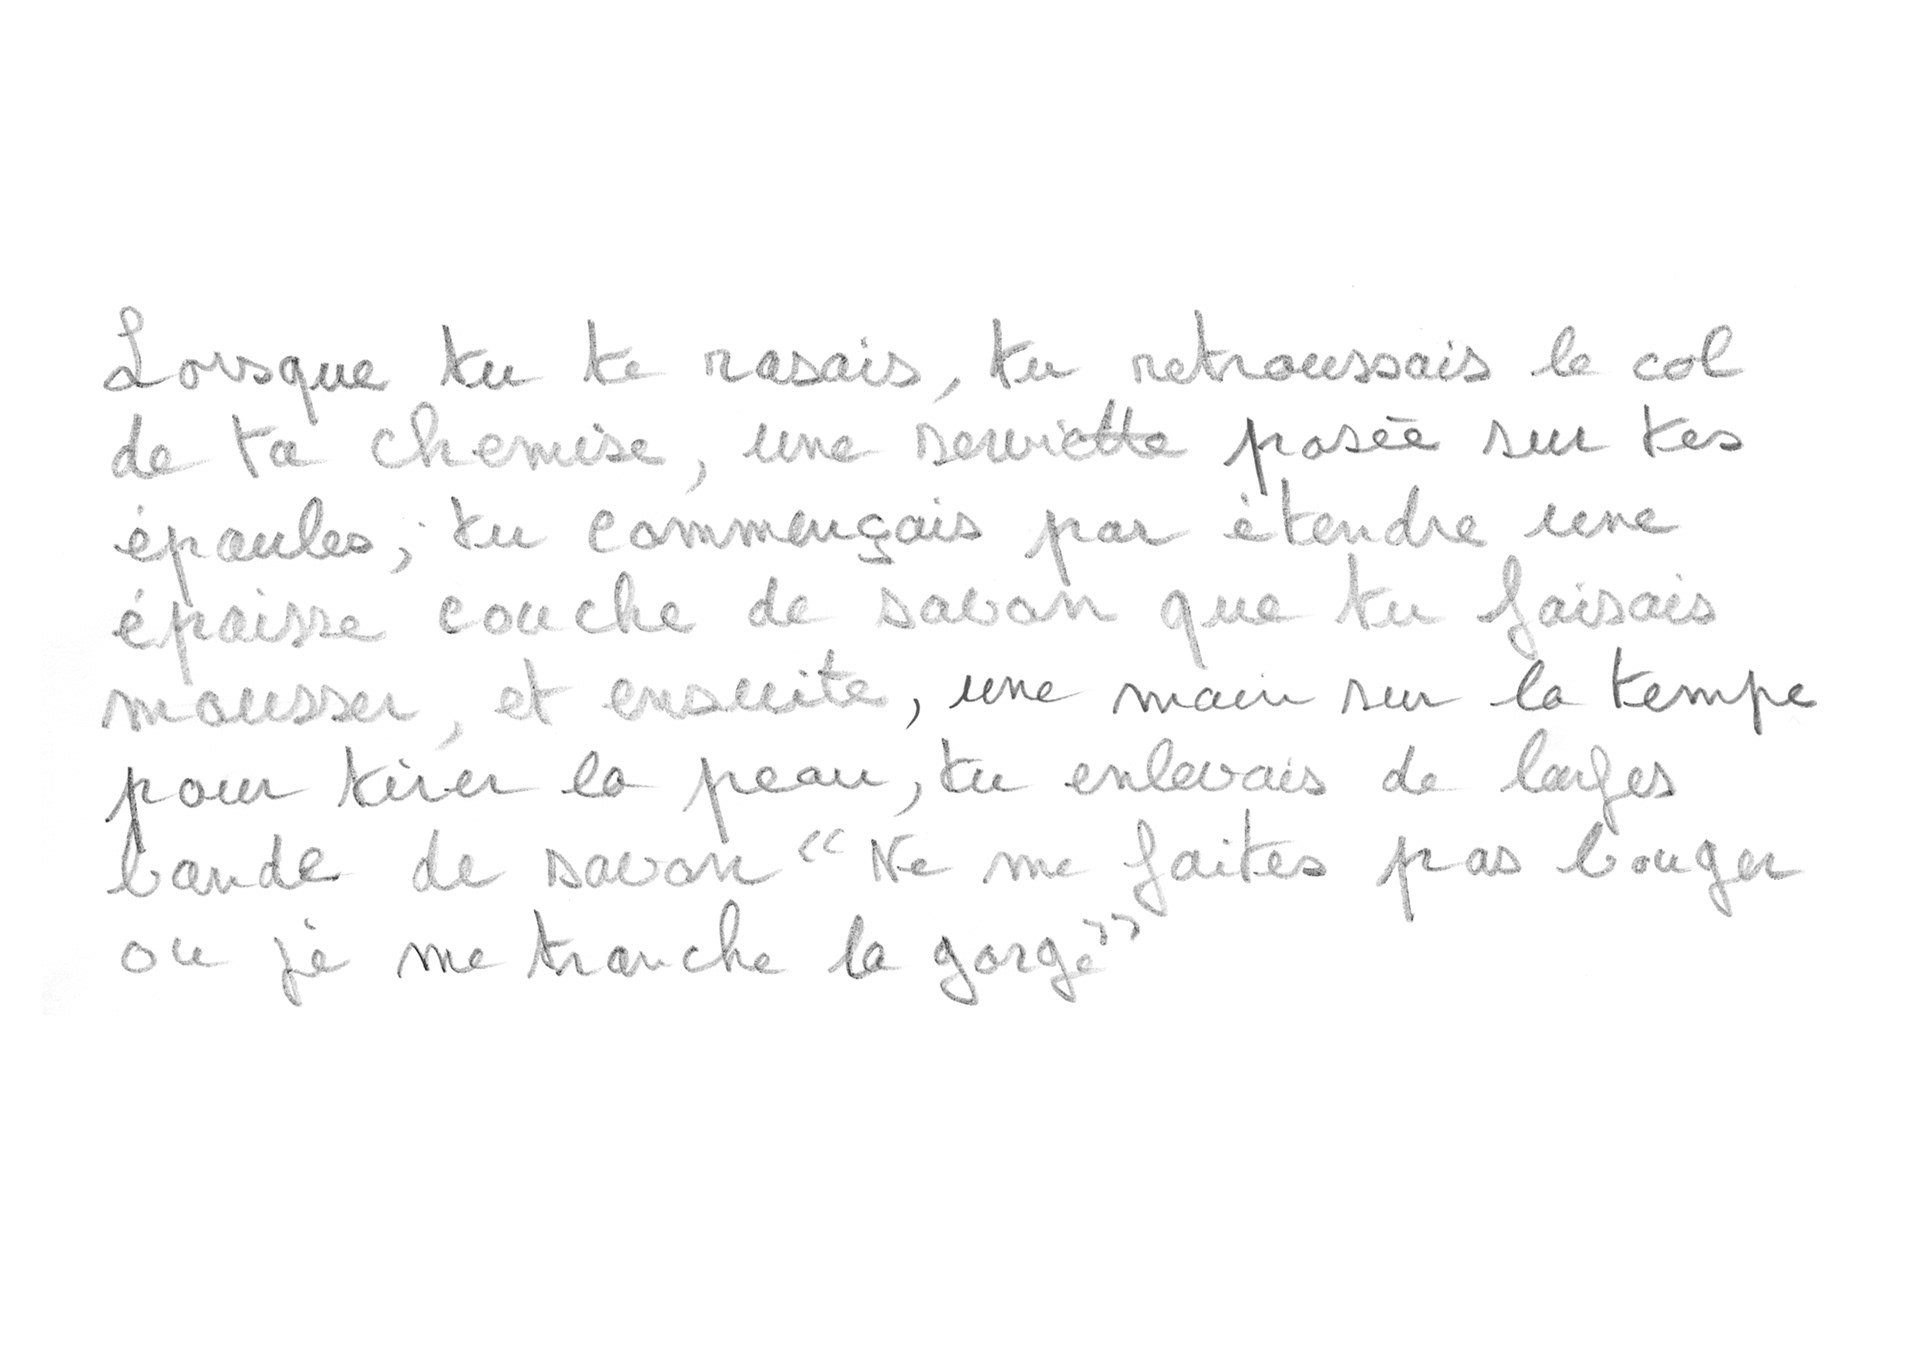 Lorsque tu te rasais, tu retroussais le col
de ta chemise, une serviette posée sur tes
épaules; tu commençais par étendre une
épaisse couche de savon que tu faisais
mousser, et ensuite, une main sur la tempe
pour tirer la peau, tu enlevais de larges
bande de savon “Ne me faites pas bouger
ou je me tranche la gorge”